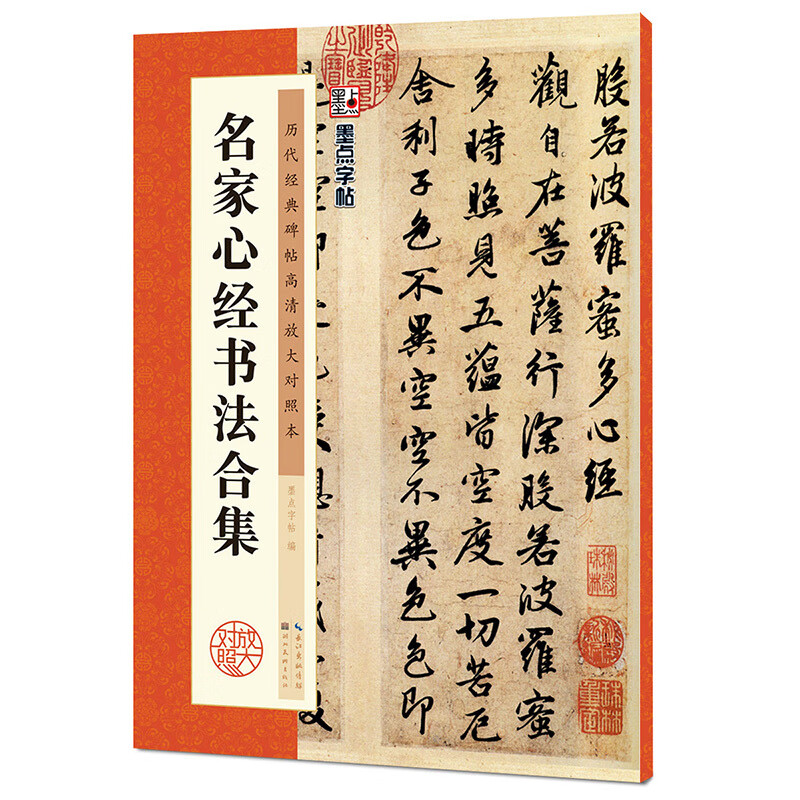 名家心经书法合集
历代经典碑帖高清放大对照本
墨点字帖 编
放大对照
长江出版传媒
湖北美术出版社
墨点
墨点字帖
般若波羅蜜多心經
觀自在菩薩行深般若波羅蜜
多時照見五蘊皆空度一切苦厄
舍利子色不異空空不異色色即